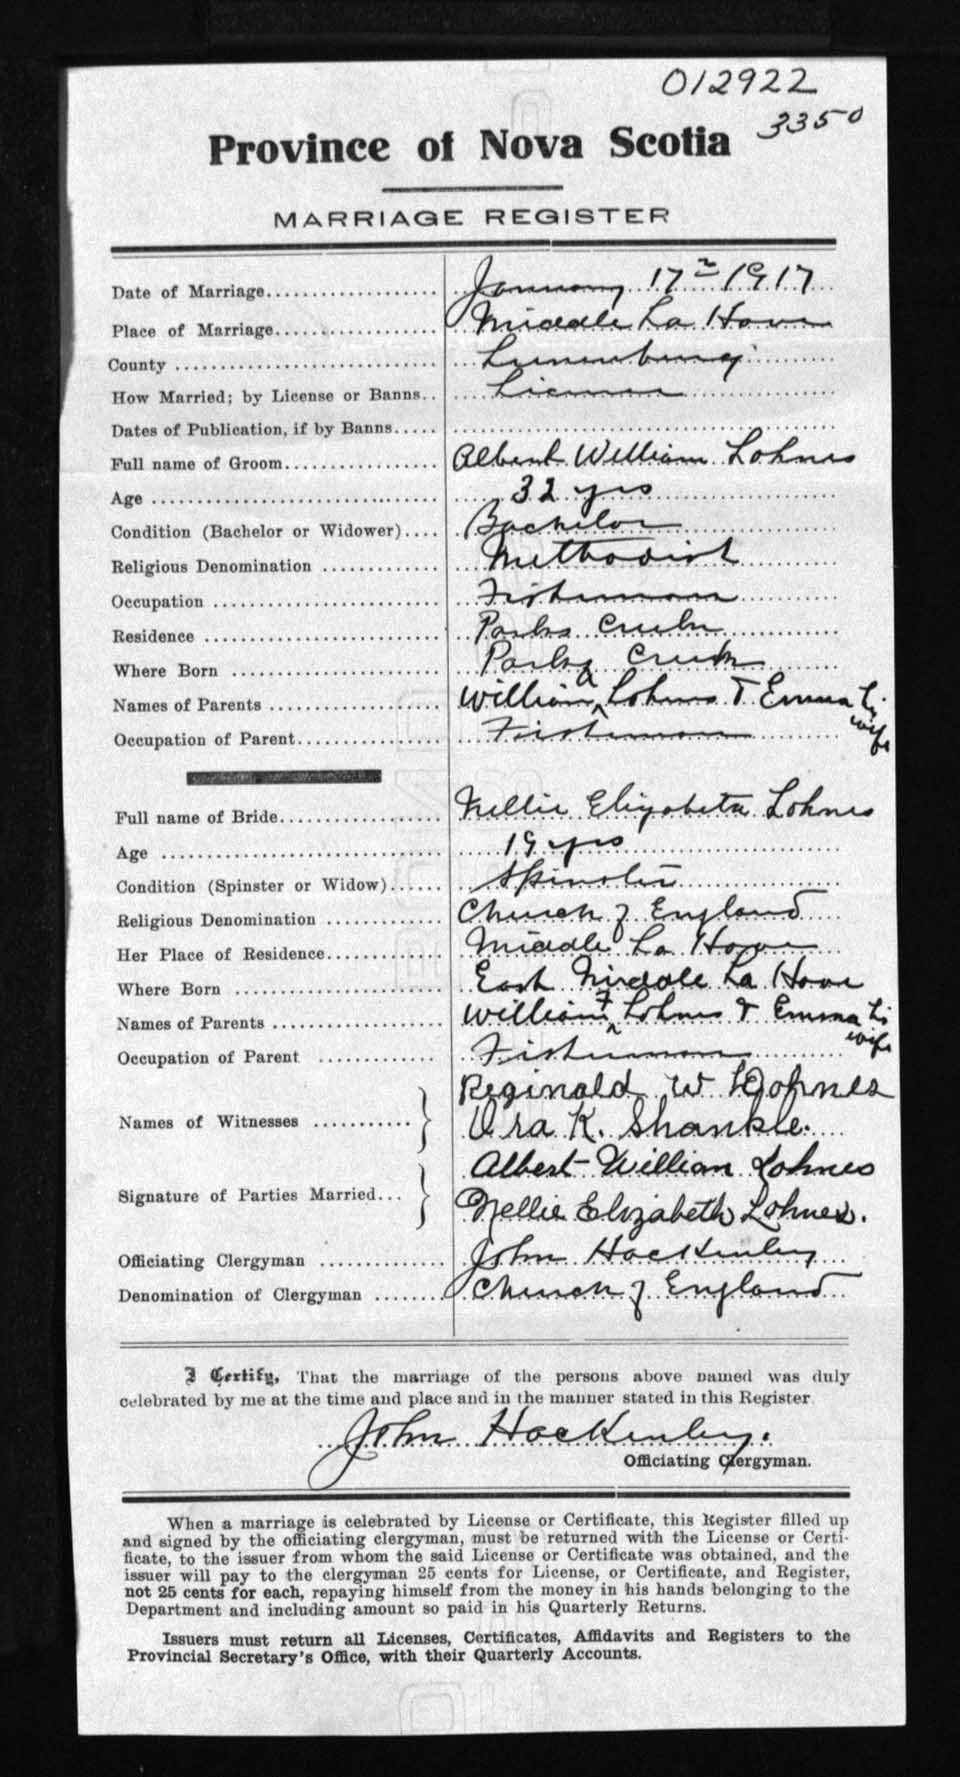 012922
3350
Province of Nova Scotia
MARRIAGE REGISTER
Date of Marriage January 17th 1917
Place of Marriage Middle La Have
County Lunenburg
How Married; by License or Banns License
Dates of Publication, if by Banns
Full name of Groom Albert William Lohnes
Age 32 yrs
Condition (Bachelor or Widower) Bachelor
Religious Denomination Methodist
Occupation Fisherman
Residence Parks Creek
Where Born Parks Creek
Names of Parents William A Lohnes & Emma his wife
Occupation of Parent Fisherman
Full name of Bride Nellie Elizabeth Lohnes
Age 19 yrs
Condition (Spinster or Widow) Spinster
Religious Denomination Church of England
Her Place of Residence Middle La Have
Where Born East Middle La Have
Names of Parents William F Lohnes & Emma his wife
Occupation of Parent Fisherman
Names of Witnesses Reginald W Lohnes
Ora K. Shankle.
Signature of Parties Married Albert William Lohnes
Nellie Elizabeth Lohnes.
Officiating Clergyman John Hackenley
Denomination of Clergyman Church of England
I Certify, That the marriage of the persons above named was duly
celebrated by me at the time and place and in the manner stated in this Register
John Hackenley.
Officiating Clergyman.
When a marriage is celebrated by License or Certificate, this Register filled up
and signed by the officiating clergyman, must be returned with the License or Certi-
ficate, to the issuer from whom the said License or Certificate was obtained, and the
issuer will pay to the clergyman 25 cents for License, or Certificate, and Register,
not 25 cents for each, repaying himself from the money in his hands belonging to the
Department and including amount so paid in his Quarterly Returns.
Issuers must return all Licenses, Certificates, Affidavits and Registers to the
Provincial Secretary's Office, with their Quarterly Accounts.